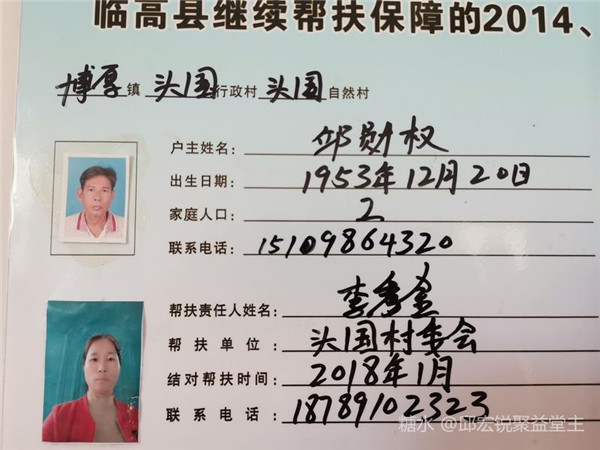 临高县继续帮扶保障的2014、
博厚镇 头国行政村 头国自然村
户主姓名: 邱勋权
出生日期: 1953年12月20日
家庭人口: 2
联系电话: 15109864320
帮扶责任人姓名: 李秀金
帮扶单位: 头国村委会
结对帮扶时间: 2018年1月
联系电话: 18789102323
糖水 @邱宏锐聚益堂主